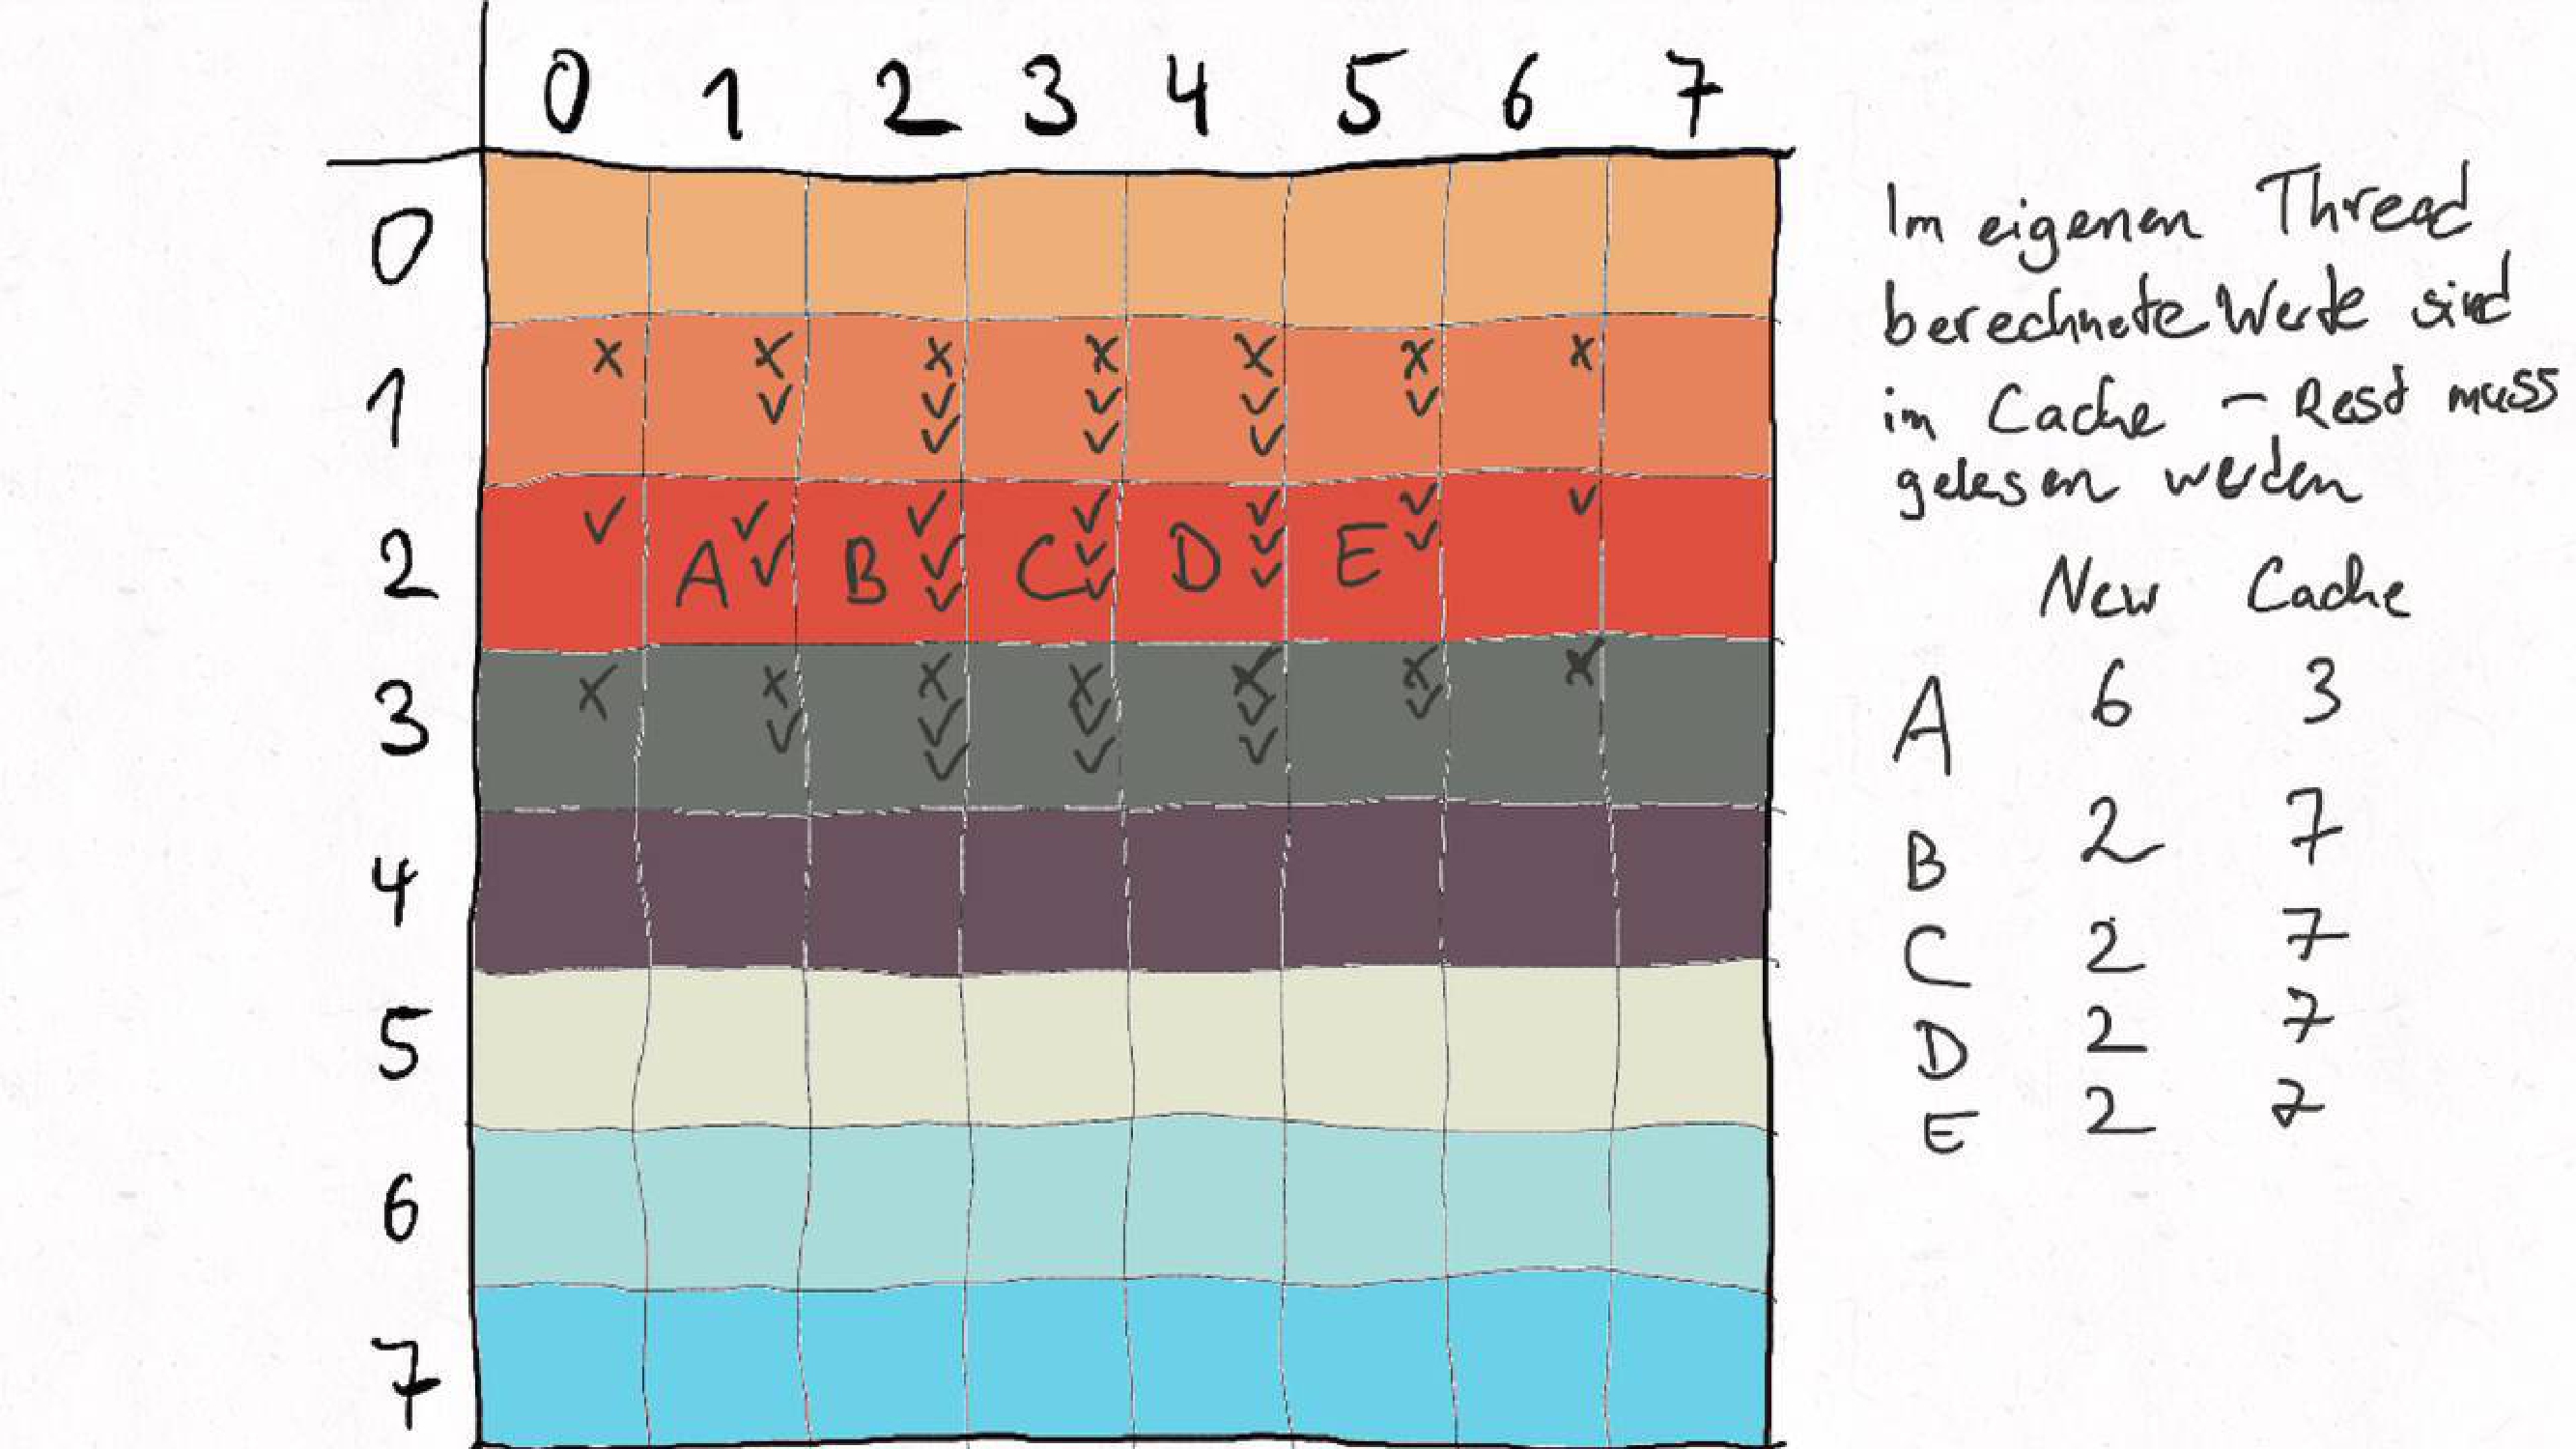 0 1 2 3 4 5 6 7
0
1
2 A B C D E
3
4
5
6
7
Im eigenen Thread
berechnete Werte sind
im Cache - Rest muss
gelesen werden
New Cache
A 6 3
B 2 7
C 2 7
D 2 7
E 2 7